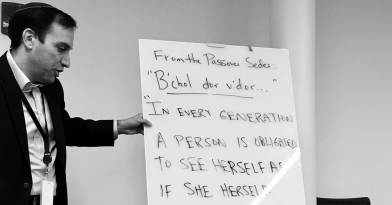 From the Passover Seder:
"B'chol dor v'dor..."
"IN EVERY GENERATION
A PERSON IS OBLIGATED
TO SEE HERSELF AS
IF SHE HERSELF